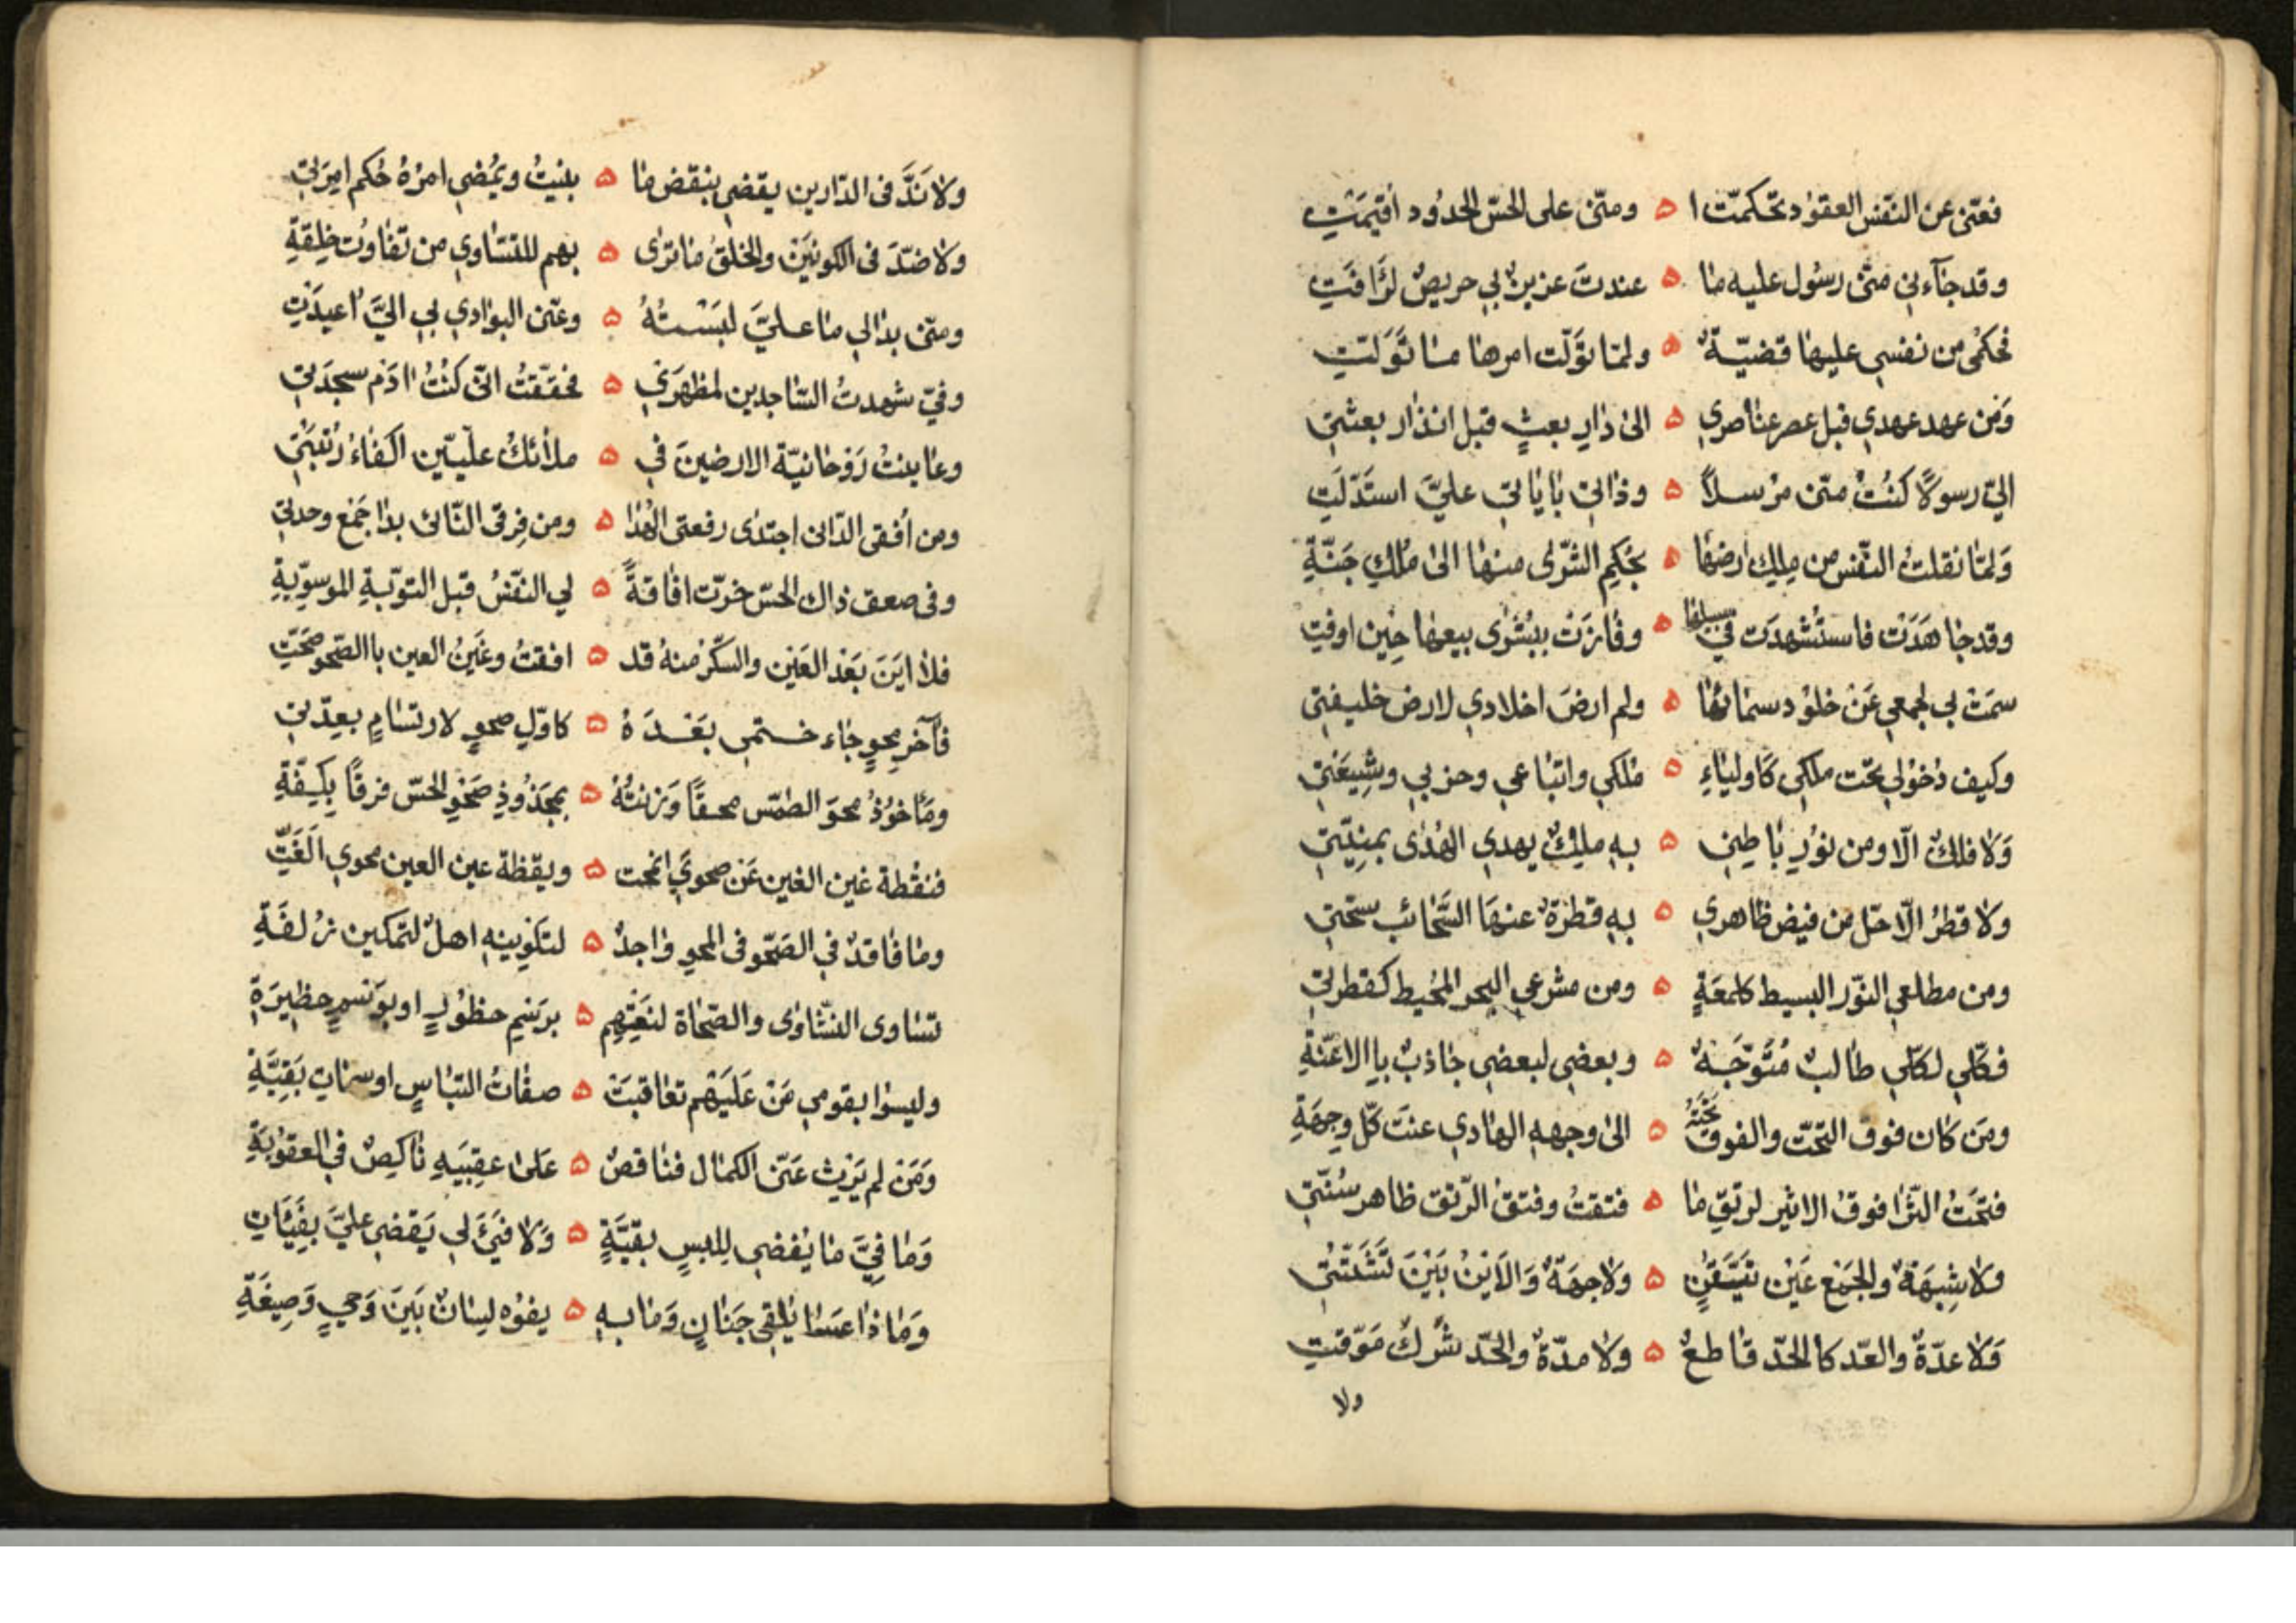 فعنّى عن النّفس العقود تحكمّت ا ه ومنّى على الحسّ الحدُود اُقيمَتِ
وقد جآءنى منّى رسُول عليه ما ه عندتَ عزيزٌ بي حريصٌ لرَافَتِ
فحكمى من نفسي عليها قضيّةٌ ه ولمّا توَلّت امرها ما تَوَلتِ
وَمن عهد عهدي قبل عصر عناصري ه الى دَارِ بعثٍ قبل انذار بعثتي
اليّ رسولاً كنُتُ منّى مرْسلاً ه وذاتى باٰياتى عليَّ استَدّلَتِ
وَلمّا نقلتُ النّفس من مِلِك ارضها ه بحُكِم الشّرٰى منها الى مُلكِ جَنّةِ
وقد جاهَدَتْ فاستُشهدَت في سبيلها ه وفازَتْ ببُشرٰى بيعها حِين اوفتِ
سمَت بي لجمعي عَنْ خلوُد سمائها ه ولم ارضَ اخلادي لارض خليفتى
وكيف دُخوُلي تحت ملكى كَاولياءِ ه مُلكي واتباعي وحزبي وشِيعَتى
وَلا فلكٌ الّا ومن نوُرِ باطِنى ه بهِ ملِكٌ يهدي الهُدٰى بمشِيّتى
ولا قطرُ الّا حَل من فيض ظاهري ه بهِ قطرَةٌ عنهَا السَّحَائب سحّتِ
ومن مطلعي النّور البسيط كلمعَةٍ ه ومن مشرعي البحر المُحيط كقطرتى
فكلّي لكلّي طالبٌ مُتَوّجّهٌ ه وبعضي لبعضي جاذبٌ باِ الاعنّةِ
ومَن كان فوق التّحت والفوق تحَتَهُ ه الى وجههِ الهادي عنتَ كلّ وجهَةِ
فتحَتُ الثّرٰا فوقُ الاثير لرتقِ ما ه فتقتُ وفتقُ الرّتق ظاهر سُنّتى
ولا شِبهَةٌ والجَمْع عَيْن تيَقّنٍ ه ولا جهَةٌ وَالاَيْنُ بَيْنَ تَشَتّتى
وَلا عدّةٌ والعّد كالحّد قاطعٌ ه ولا مدّةٌ والحّد شركُ مَوّقتِ
ولا
ولا نَدَّ فى الدّارين يقضي بنقض ما ه بنيتُ ويمُضي امرُهُ حُكم امِرَتى
ولا ضدّ فى الكونَيَن والخلقُ ما ترٰى ه بهم للتسَاوي من تفاوُت خِلقةِ
ومنّى بدٰا لي ما علىَّ لبَسْتُهُ ه وعنّى البوادي بي اليَّ اُعيدَتِ
وفيّ شهدتُ السّاجدين لمظهرَي ه فحقّقتُ انّى كنُتُ اٰدَم سجدَتى
وعاينتُ رَوْحانيّة الارضينَ في ه ملائكُ علّييّن اكفاءُ رُتَبتى
ومن اُفقى الدّانى اجتدٰى رفعتى الهُدٰا ه ومن فِرقى الثّانى بدٰا جَمْع وحدتى
وفى صعق ذاك الحسّ خرّت افاقةً ه لي النّفسُ قبل التوّبةِ الموسوّيةِ
فلا ايَنَ بَعْد العَيْن والسكّر منهُ قد ه افقتُ وغَيَنُ العين باالصّحو صحَّتِ
فآخرِ محوٍ جاء ختمي بَعْدَهُ ه كاوّلِ صحوٍ لارتسَامٍ بعِدّتى
ومَأخوُذُ محوَ الطمّس محقًا وَزنتُهُ ه بمجذُوذِ صَحْوِ الحسّ فرقًا بكِفّةِ
فنقْطة غين الغين عَنْ صحويَ انمحت ه ويقَظة عين العين محوي الَغَتِّ
وما فاقدٌ في الصّحو فى المحوِ وٰاجدٌ ه لتكوْينهِ اهلٌ لتمكين زُلفَةِ
تسَاوى النشّاوٰى والصّحاة لنعَتِهِم ه برَسْمِ حظوُرٍ او بوَسْمِ حظِيرَةِ
وليسوُا بقومي مَنْ عَلَيَهْم تعاقبَتْ ه صفاتُ التباسٍ او سماتِ بَقِيّةِ
وَمَن لم يَرِثْ عَنّى الكمال فناقصٌ ه عَلى عقبِيَهِ ناكِصٌ في العقوُبَةِ
وَما فِيَّ ما يُفضي لِلبسٍ بقيّةٍ ه وَلا فَيْئَ لي يَقضي عليَّ بفَيئَاتِ
وَماذا عسٰا يلقى جَنانٍ وَما بهِ ه يفوُه لِسانٌ بَيَنَ وَحيٍ وَصِيغَةِ